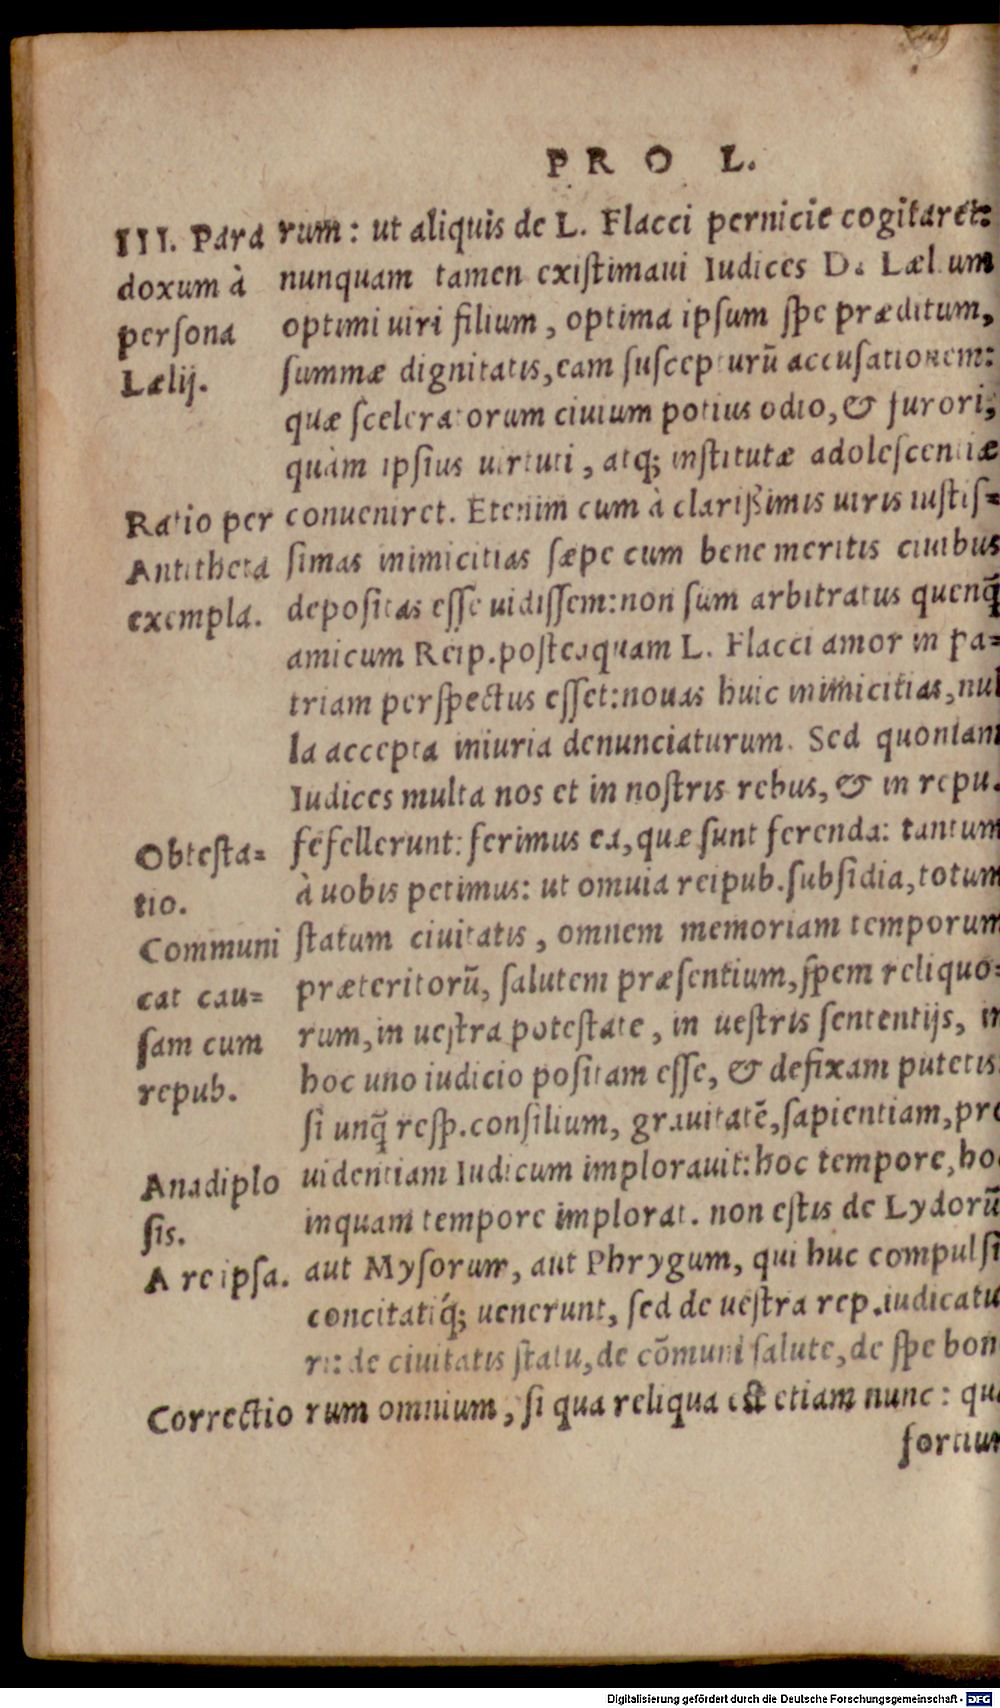 PRO L.
III. Para
doxum à
persona
Lælij.
Ratio per
Antitheta
exempla.
Obtesta=
tio.
Communi
cat cau=
sam cum
repub.
Anadiplo
sis.
A re ipsa.
Correctio
rum: ut aliquis de L. Flacci pernicie cogitaret:
nunquam tamen existimaui Iudices D. Lælium
optimi uiri filium, optima ipsum spe præditum,
summæ dignitatis, eam suscepturũ accusationem:
quæ sceleratorum ciuium potius odio, & furori,
quàm ipsius uirtuti, atq; institutæ adolescentiæ
conueniret. Etenim cum à clarißimis uiris iustis=
simas inimicitias sæpe cum bene meritis ciuibus
depositas esse uidissem: non sum arbitratus quenq̃
amicum Reip. posteaquam L. Flacci amor in pa=
triam perspectus esset: nouas huic inimicitias, nul
la accepta iniuria denunciaturum. Sed quoniam
Iudices multa nos et in nostris rebus, & in repu.
fefellerunt: ferimus ea, quæ sunt ferenda: tantum
à uobis petimus: ut omuia reipub. subsidia, totum
statum ciuitatis, omnem memoriam temporum
præteritorũ, salutem præsentium, spem reliquo=
rum, in uestra potestate, in uestris sententijs, in
hoc uno iudicio positam esse, & defixam putetis
si unq̃ resp. consilium, grauitatẽ, sapientiam, pro
uidentiam Iudicum implorauit: hoc tempore, ho
inquam tempore implorat. non estis de Lydorũ
aut Mysorum, aut Phrygum, qui huc compulsi
concitatiq́; uenerunt, sed de uestra rep. iudicatu
ri: de ciuitatis statu, de cõmuni salute, de spe bon
rum omnium, si qua reliqua est etiam nunc: qu
fortium